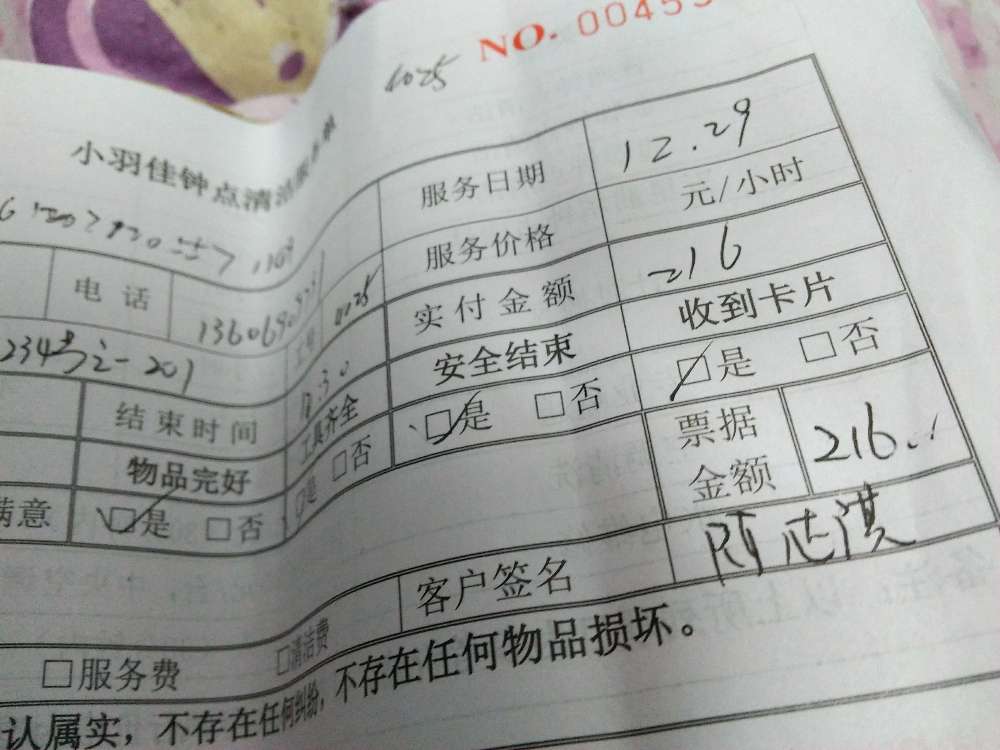 NO. 00455
4025
小羽佳钟点清洁服务单
服务日期 12.29
服务价格 元/小时
电话 136069
工号 4025
实付金额 216
234号之一201
安全结束 收到卡片
结束时间
工具齐全 □是 □否 □是 □否
物品完好 □是 □否
票据金额 216
满意 □是 □否
客户签名
□服务费 □清洁费
认属实，不存在任何纠纷，不存在任何物品损坏。